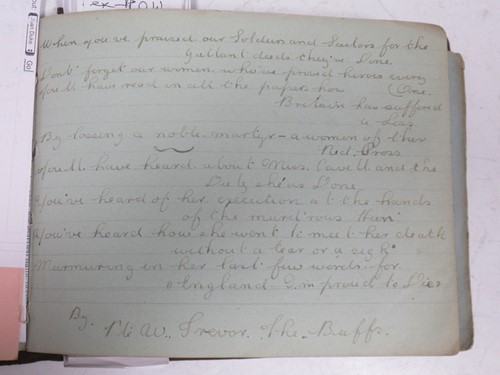 ex-POW
When you've praised our Soldiers and Sailors for the
Gallant deeds they've Done
Don't forget our women who've proved heros every
One.
You'll have read in all the papers how
Britain has suffered
a Loss
By lossing a noble martyr - a women of the
Red. Cross
You'll have heard about Miss. Cavell and the
Duty she's Done
You've heard of her execution at the hands
of the murd'rous Hun
You've heard how she went to meet her death
without a tear or a sigh
Murmuring in her last few words for
England I'm proud to Die
By. Pte W. Trevor. The. Buffs.